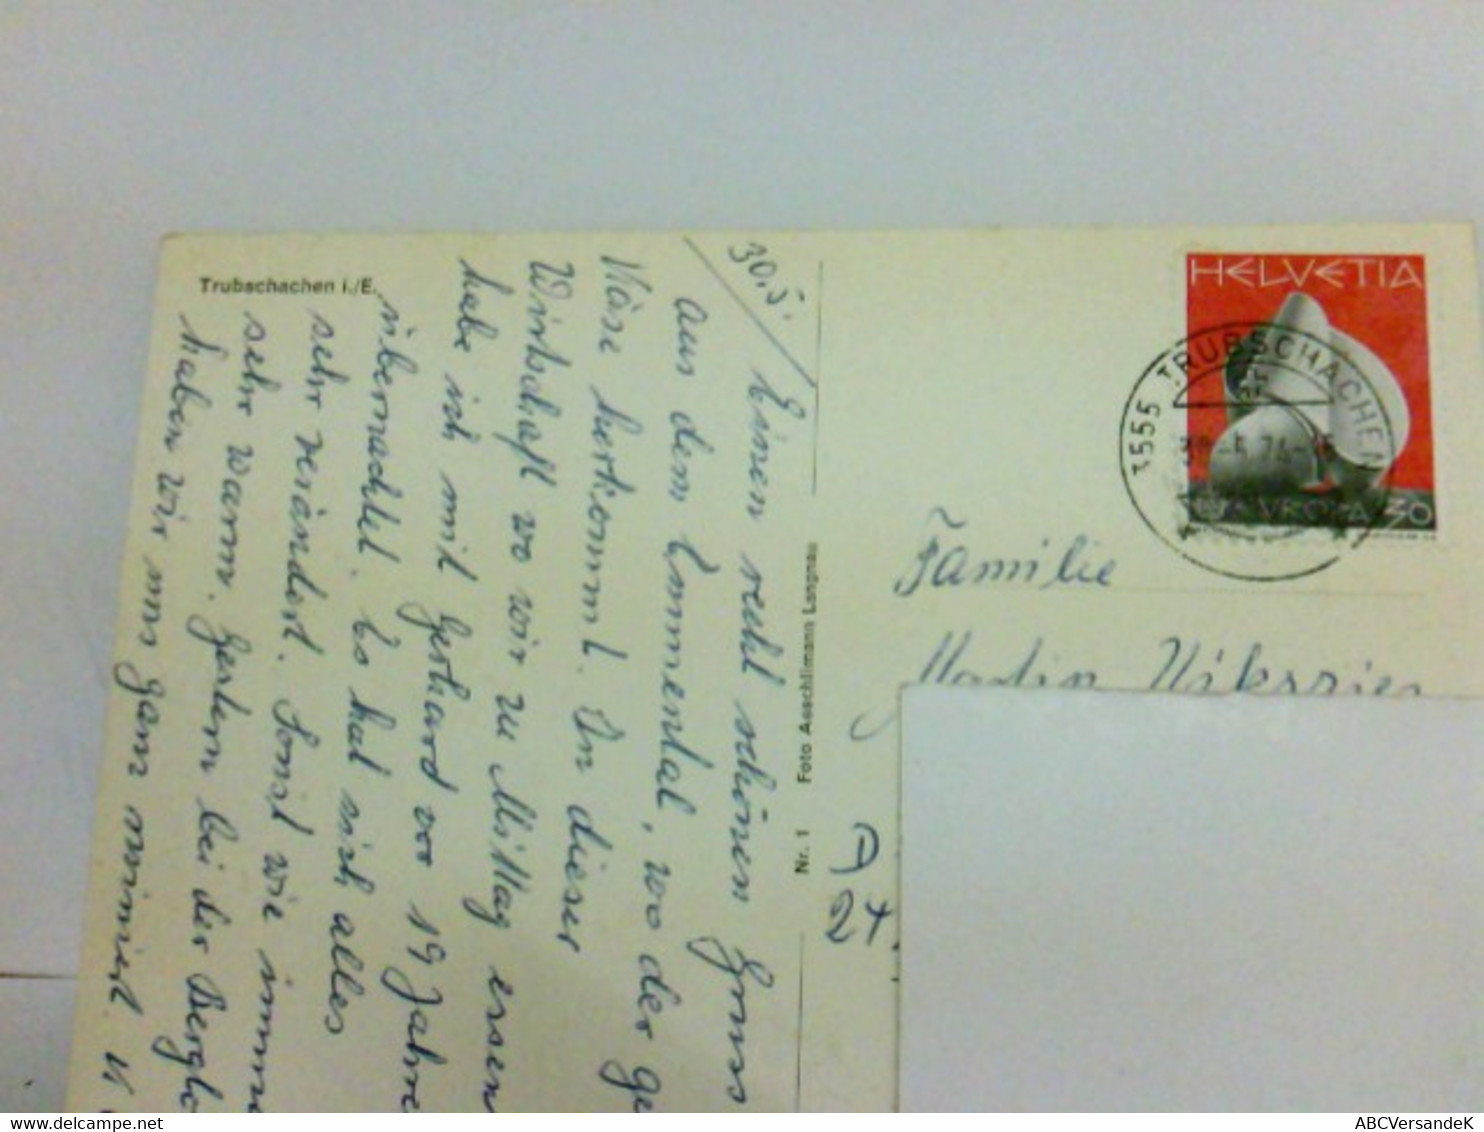 Trubschachen i./E.
30.5.
Einen recht schönen Gruss
aus dem Emmental, wo der
Käse herkommt. In dieser
Wirtschaft wo wir zu Mittag essen
habe ich mit Gerhard vor 19 Jahre
übernachtet. Es hat sich alles
sehr verändert. Sonst wie imme
sehr warm. Gestern bei der Berg
haben wir uns ganz
Nr. 1 Foto Aeschlimann Langnau
HELVETIA
3555 TRUBSCHACHEN
EUROPA 30
Familie
Martin
A
ABCVersandeK